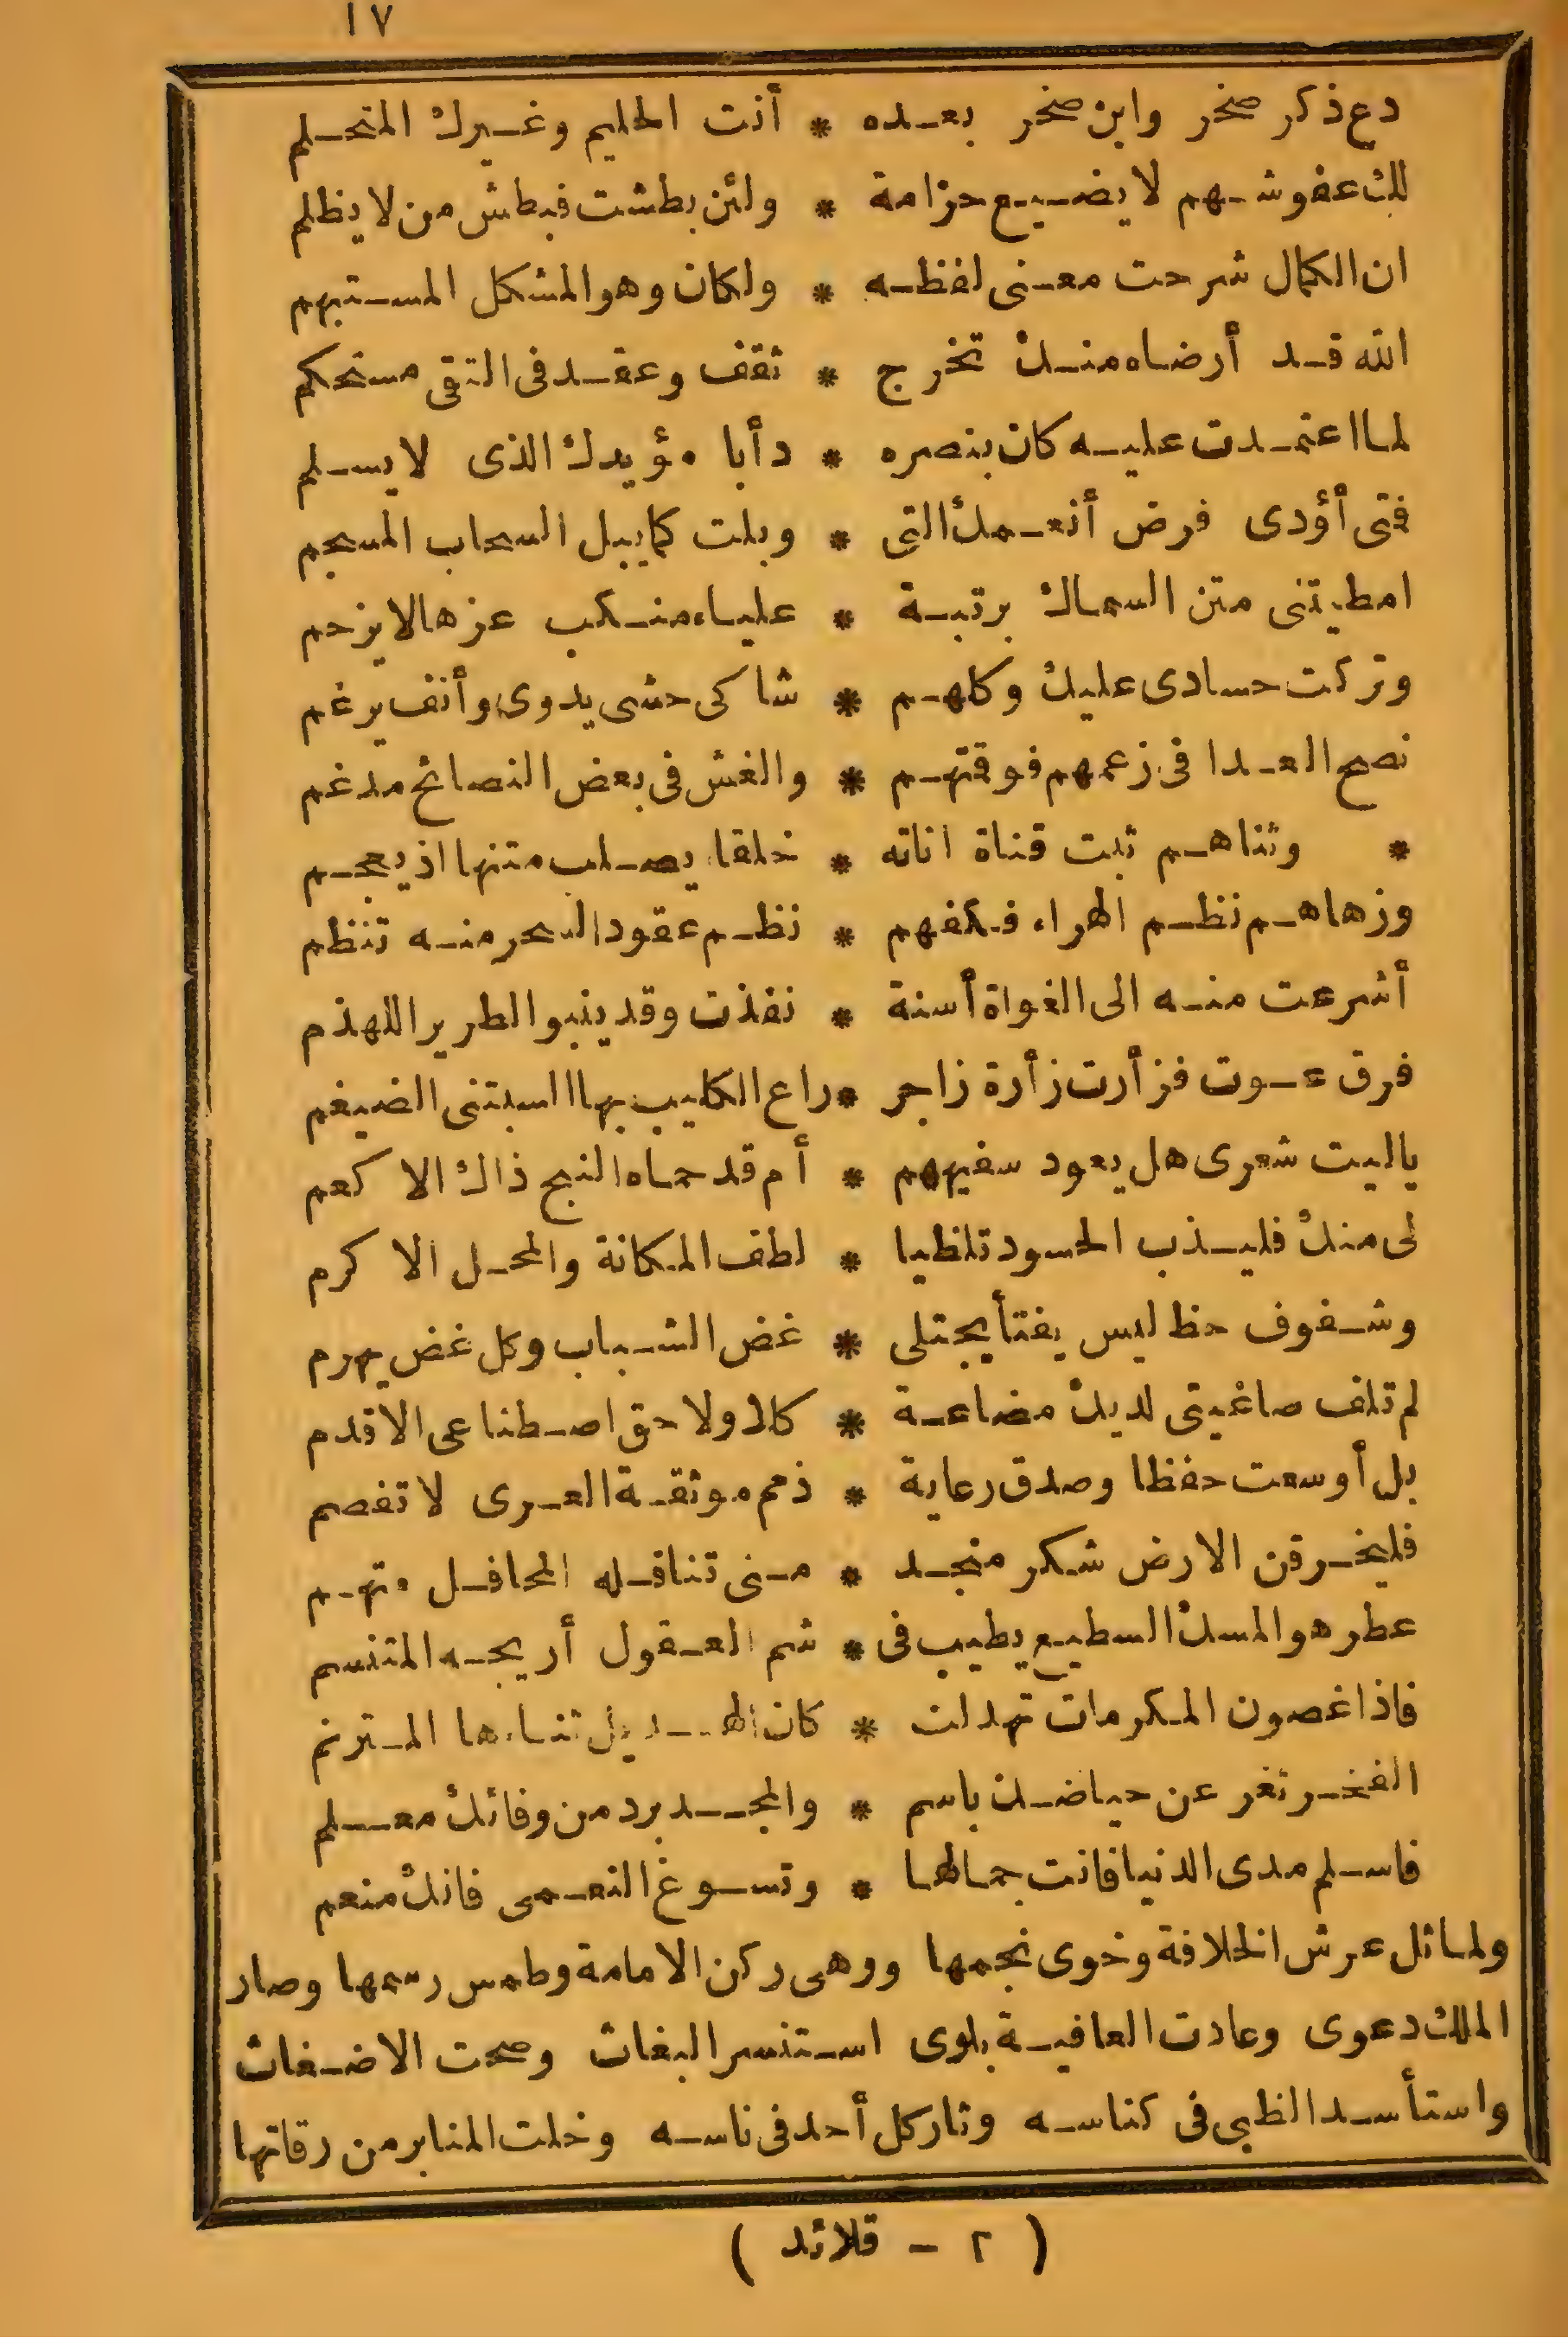 ١٧
دع ذكر صخر وابن صخر بعده * أنت الحليم وغيرك المتحلم
لك عفو شهم لا يضيع حزامة * ولئن بطشت فبطش من لا يظلم
ان الكمال شرحت معنى لفظه * ولكان وهو المشكل المستبهم
الله قد أرضاه منك تخرج * ثقف وعقد في التقى مستحكم
لما اعتمدت عليه كان بنصره * دأبا مؤيدك الذى لا يسلم
فتى أؤدى فرض أنعمك التى * وبلت كما يبل السحاب المسجم
امطيتنى متن السماك برتبة * علياء منكب عزها لا يزحم
وتركت حسادى عليك وكلهم * شاكى حشى يدوى وأنف يرغم
نصح العدا فى زعمهم فوقتهم * والغش فى بعض النصائح مدغم
* وثناهم ثبت قناة اناته * خلقا يصلب متنها اذ يعجم
وزهاهم نظم الهراء فكفهم * نظم عقود السحر منه تنظم
أشرعت منه الى الغواة أسنة * نفذت وقد ينبو الطرير اللهذم
فرق عوت فزأرت زأرة زاجر * راع الكليب بها السبنتى الضيغم
ياليت شعرى هل يعود سفيههم * أم قد حماه النبح ذاك الاكعم
لى منك فليذب الحسود تلظيا * لطف المكانة والمحل الاكرم
وشفوف حظ ليس يفتأ يجتلى * غض الشباب وكل غض يهرم
لم تلف صاغيتى لديك مضاعة * كلا ولا حق اصطناعى الاقدم
بل أوسعت حفظا وصدق رعاية * ذمم موثقة العرى لا تفصم
فليخرقن الارض شكر منجد * منى تناقله المحافل متهم
عطر هو المسك السطيع يطيب فى * شم العقول أريجه المتنسم
فاذا غصون المكرمات تهدلت * كان الهديل ثناءها المترنم
الفخر ثغر عن حياضك باسم * والمجد برد من وفائك معلم
فاسلم مدى الدنيا فانت جمالها * وتسوغ النعمى فانك منعم
ولما ثل عرش الخلافة وخوى نجمها ووهى ركن الامامة وطمس رسمها وصار
الملك دعوى وعادت العافية بلوى استنسر البغاث وصحت الاضغاث
واستأسد الظبى فى كناسه وثار كل أحد فى ناسه وخلت المنابر من رقاتها
( ٢ - قلائد )